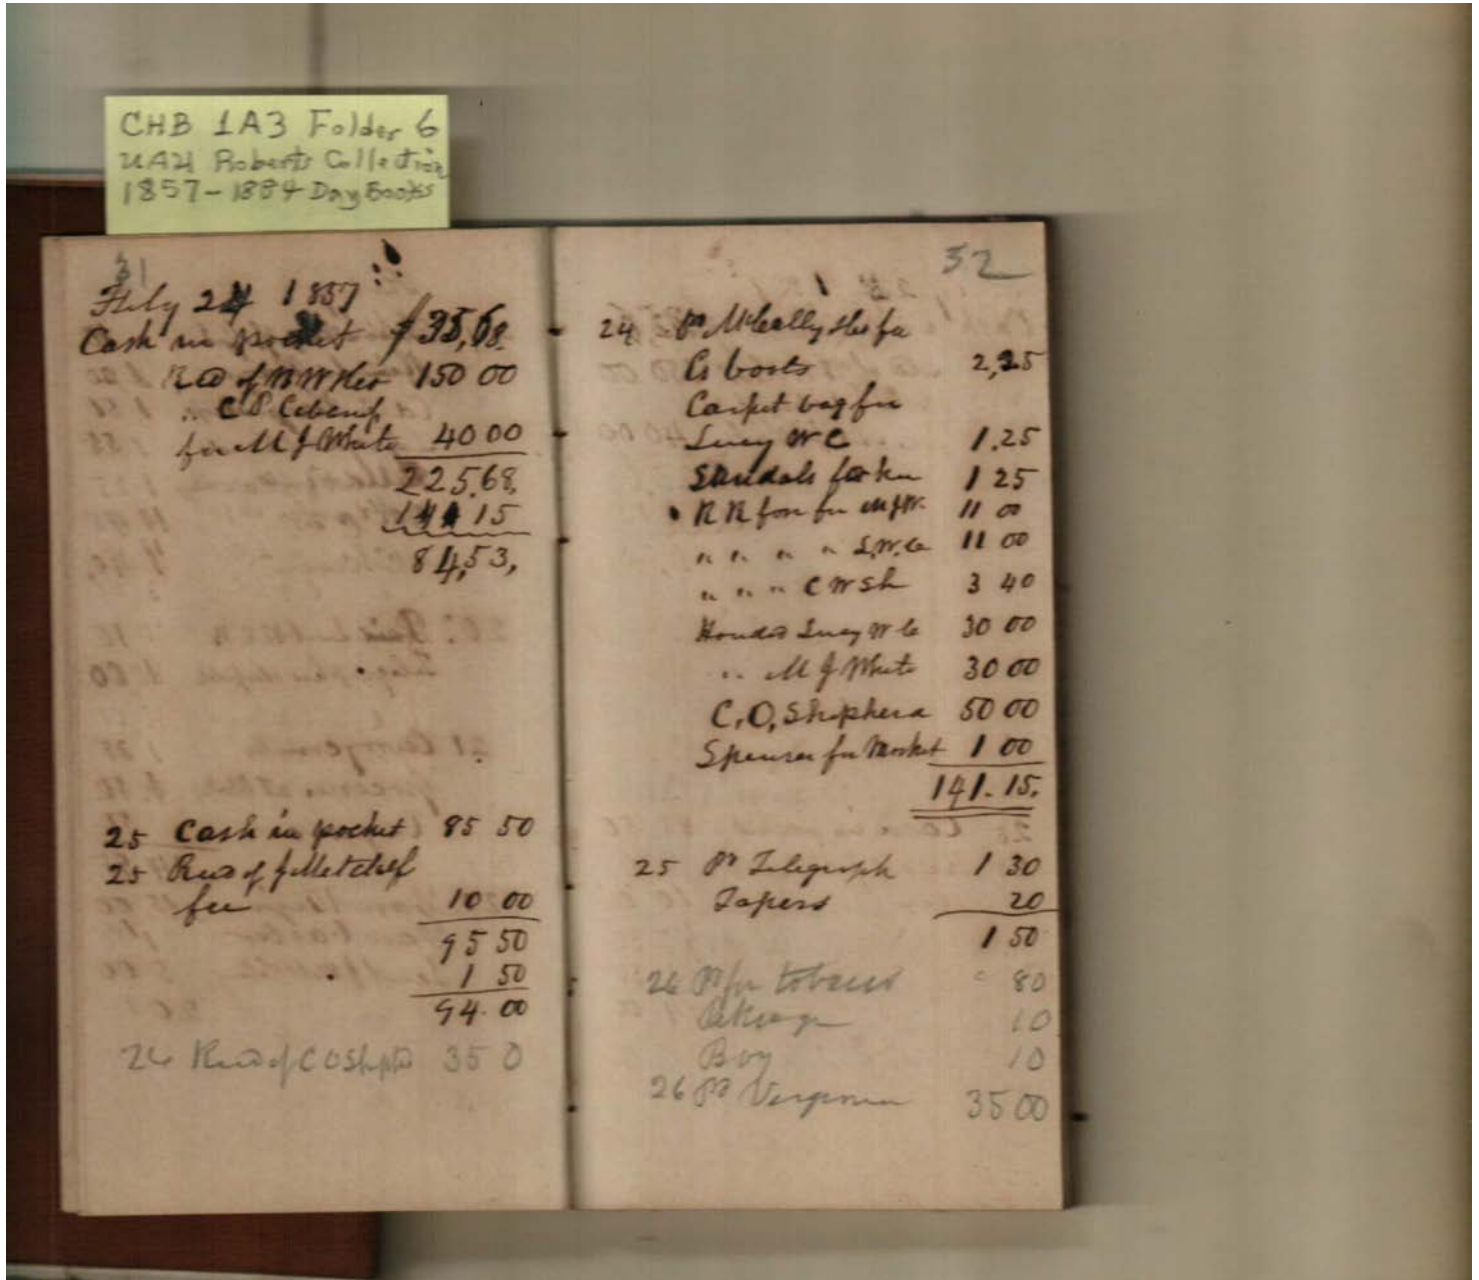 CHB 1A3 Folder 6
UAH Roberts Collection
1857-1884 Day Books
31
July 24 1857
Cash in pocket $35,68.
Recd of W W 150 00
" C P
for M J White 40 00
225,68,
141 15
84,53,
25 Cash in pocket 85 50
25 Recd of J Metchelf
fee 10 00
95 50
1 50
94.00
26 Recd of C O Shephd 35 0
32
24 Pd McCally Shs for
Cs boots 2,25
Carpet bag for
Lucy W C 1.25
Sandals for her 1 25
R R fare for MJW. 11 00
" " " " L.W.C 11 00
" " " C W Sh 3 40
Handed Lucy W C 30 00
" M J White 30 00
C, O, Shepherd 50 00
Spenser for Market 1 00
141.15.
25 Pd Telegraph 1 30
Tapers 20
1 50
26 Pd for tobacco 80
10
Boy 10
26 Pd 35 00